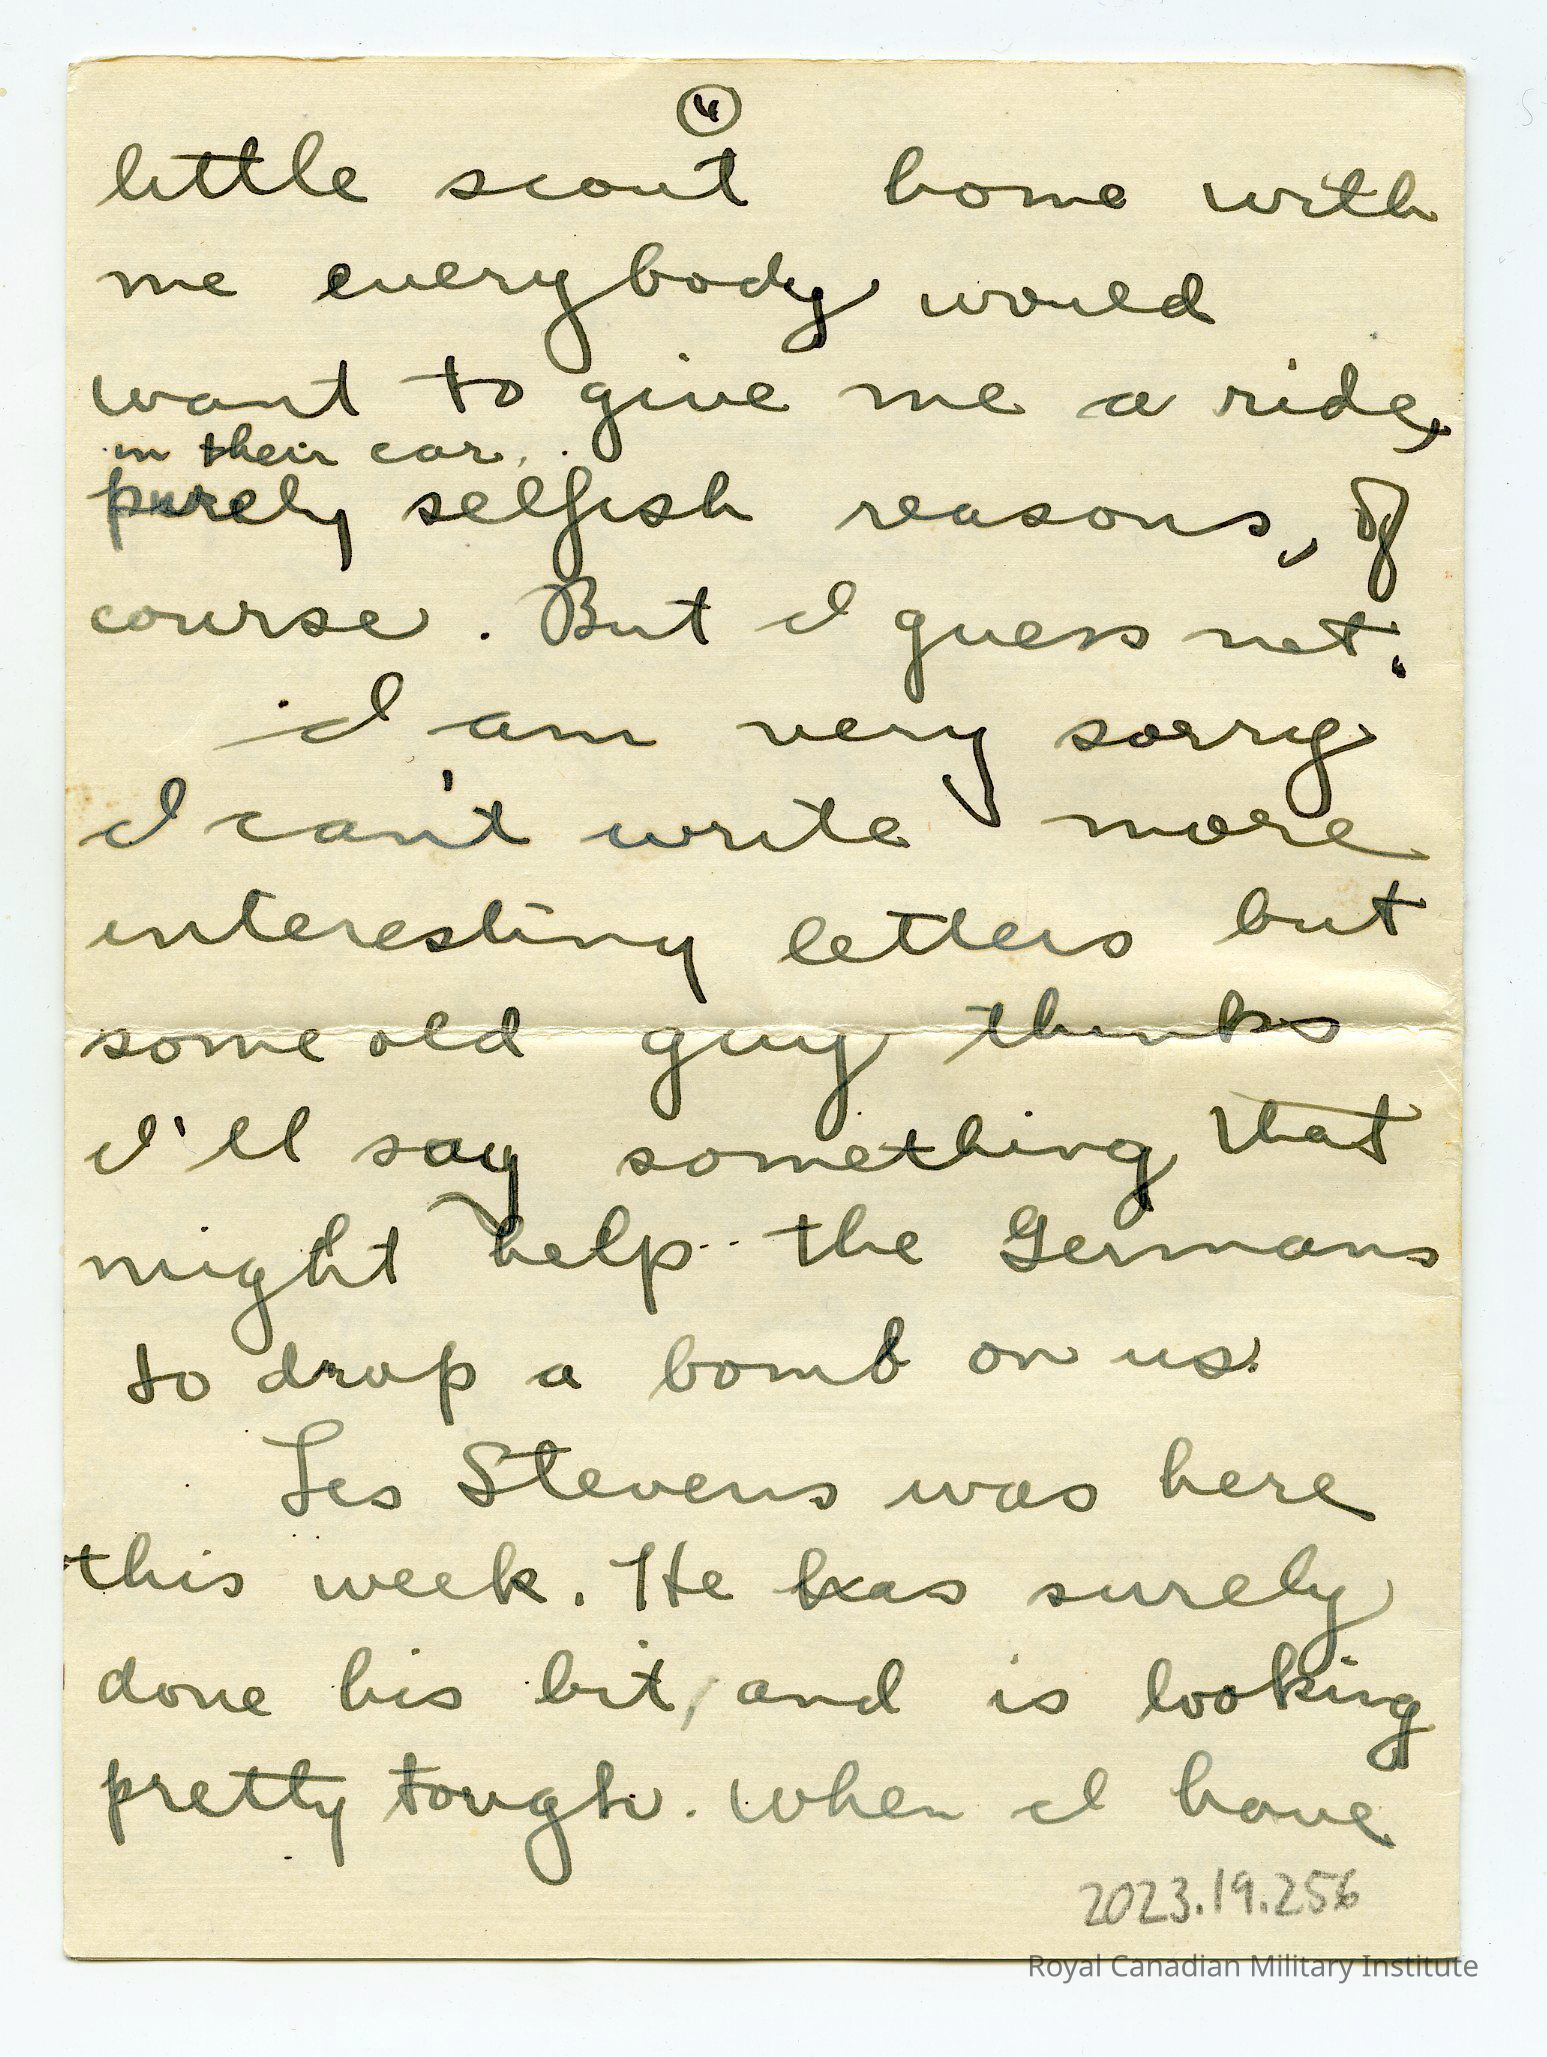 4
little scout home with
me everybody would
want to give me a ride,
in their car.
purely selfish reasons, of
course. But I guess not.
I am very sorry
I can't write more
interesting letters but
some old guy thinks
I'll say something that
might help the Germans
to drop a bomb on us.
Les Stevens was here
this week. He has surely
done his bit, and is looking
pretty tough. When I have
2023.19.256
Royal Canadian Military Institute